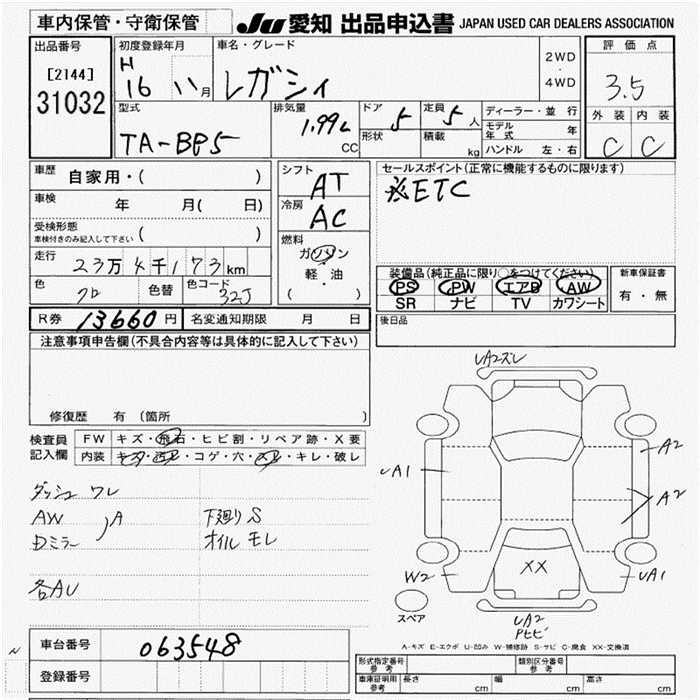 車内保管・守衛保管
JU 愛知 出品申込書 JAPAN USED CAR DEALERS ASSOCIATION
出品番号
[2144]
31032
初度登録年月
H 16 八月
車名・グレード
レガシィ
2WD
・
4WD
評価点
3.5
外装 内装
C C
型式
TA-BP5
排気量
1.99L
CC
ドア 5
形状
定員 5 人
積載 kg
ディーラー・並行
モデル年式 年
ハンドル 左・右
車歴 自家用・( )
車検 年 月( 日)
受検形態
車検付きのみ記入して下さい ( )
走行 23万4千173km
色 クロ 色替 色コード 32J
シフト AT
冷房 AC
燃料
ガソリン
・
軽・油
( )
セールスポイント(正常に機能するものに限ります)
ETC
装備品(純正品に限り○をつけてください)
PS PW エアB AW
SR ナビ TV カワシート
新車保証書
有・無
後日品
R券 13660円 名変通知期限 月 日
注意事項申告欄(不具合内容等は具体的に記入して下さい)
修復歴 有(箇所 )
検査員記入欄
FW キズ・飛石・ヒビ割・リペア跡・X要
内装 キズ・汚レ・コゲ・穴・スレ・キレ・破レ
ダッシュ ワレ
AW
Dミラー
A
下廻り S
オイル モレ
各AU
UA2ズレ
UA1
A2
A2
W2
XX
UA1
スペア
UA2
Pヒビ
A-キズ E-エクボ U-凹み W-補修跡 S-サビ C-腐食 XX-交換済
N
車台番号 063548
登録番号
形式指定番号 参考
類別区分番号 参考
車庫証明用 参考 長さ cm 幅 cm 高さ cm